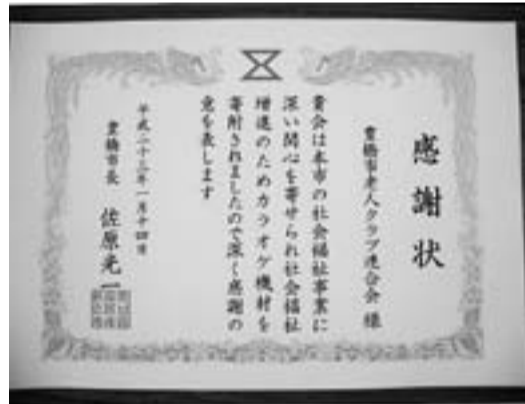 感謝状
豊橋市老人クラブ連合会 様
貴会は本市の社会福祉事業に
深い関心を寄せられ社会福祉
増進のためカラオケ機材を
寄附されましたので深く感謝の
意を表します
平成二十三年一月十四日
豊橋市長 佐原光一